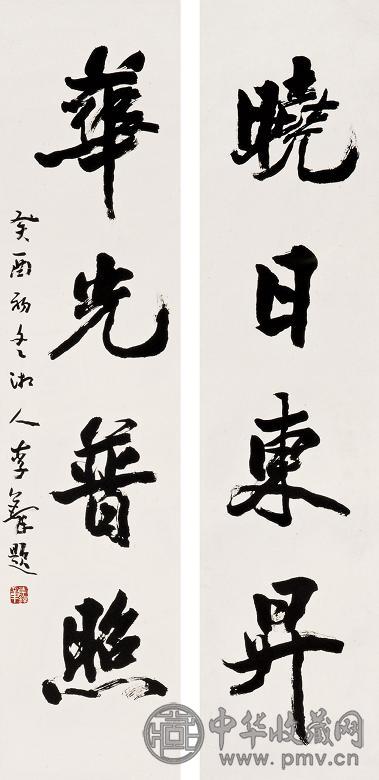 曉日東昇
華光普照
癸酉初冬湘人李鐸題
中华收藏网
www.pmv.cn